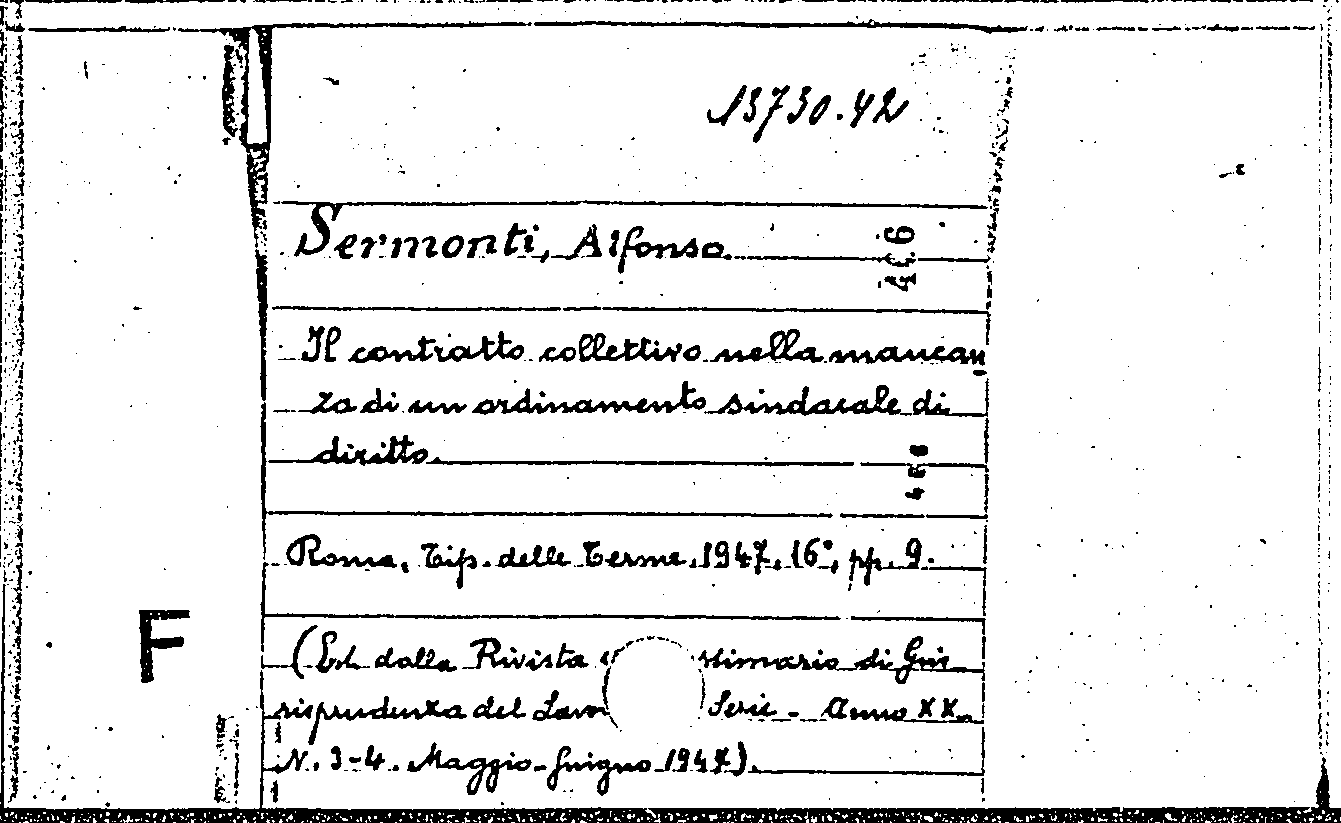 13730.42
Sermonti, Alfonso.
Il contratto collettivo nella mancan
za di un ordinamento sindacale di
diritto.
Roma, Tip. delle Terme, 1947, 16°, pp. 9.
(Est. dalla Rivista di Giu
risprudenza del Serie - Anno XX.
N. 3-4. Maggio-Giugno 1947).
F